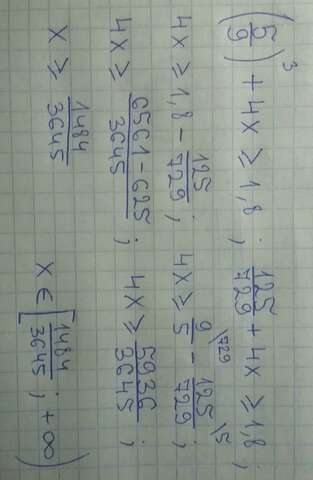 (5/9)³ + 4x ≥ 1,8 ; 125/729 + 4x ≥ 1,8 ;
4x ≥ 1,8 - 125/729 ; 4x ≥ 9/5 \729 - 125/729 \5 ;
4x ≥ (6561-625)/3645 ; 4x ≥ 5936/3645 ;
x ≥ 1484/3645 x ∈ [1484/3645 ; +∞)